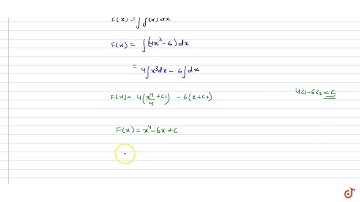 F(x) = ∫ f(x) dx
F(x) = ∫(4x³ - 6) dx
= 4∫x³dx - 6∫dx
F(x) = 4(x⁴/4 + c₁) - 6(x + c₂)
4c₁ - 6c₂ = c
F(x) = x⁴ - 6x + c
doubtnut